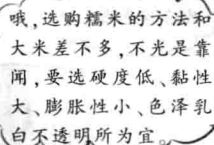 哦,选购糯米的方法和
大米差不多,不光是靠
闻,要选硬度低、黏性
大、膨胀性小、色泽乳
白不透明所为宜。